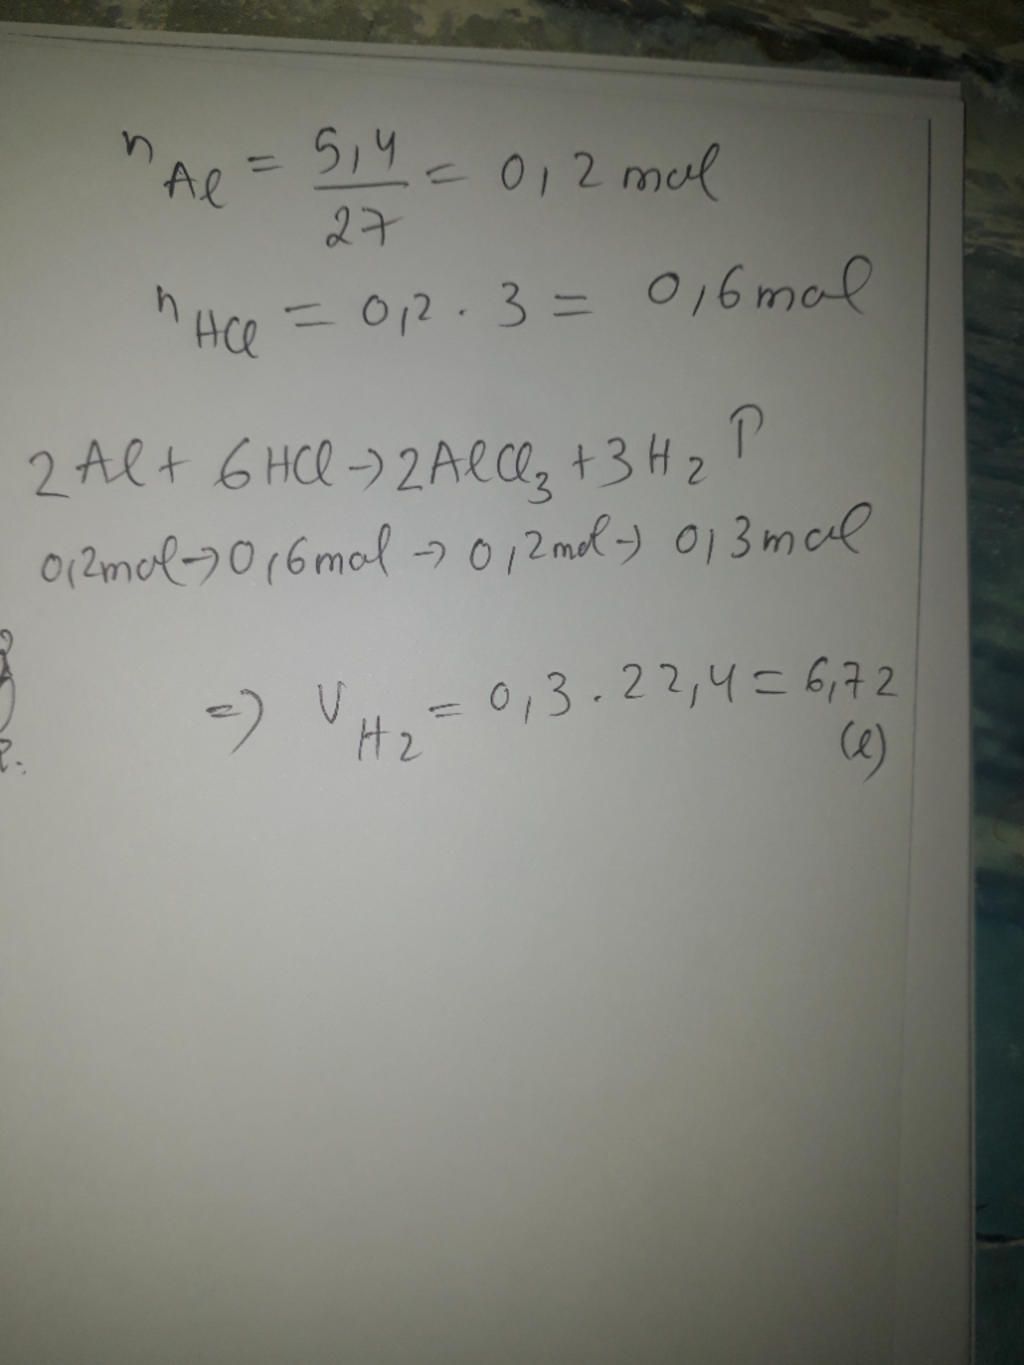 nAl = 5,4/27 = 0,2 mol
nHCl = 0,2 . 3 = 0,6 mol
2Al + 6HCl → 2AlCl3 + 3H2 ↑
0,2mol → 0,6mol → 0,2mol → 0,3mol
=> VH2 = 0,3 . 22,4 = 6,72
(l)